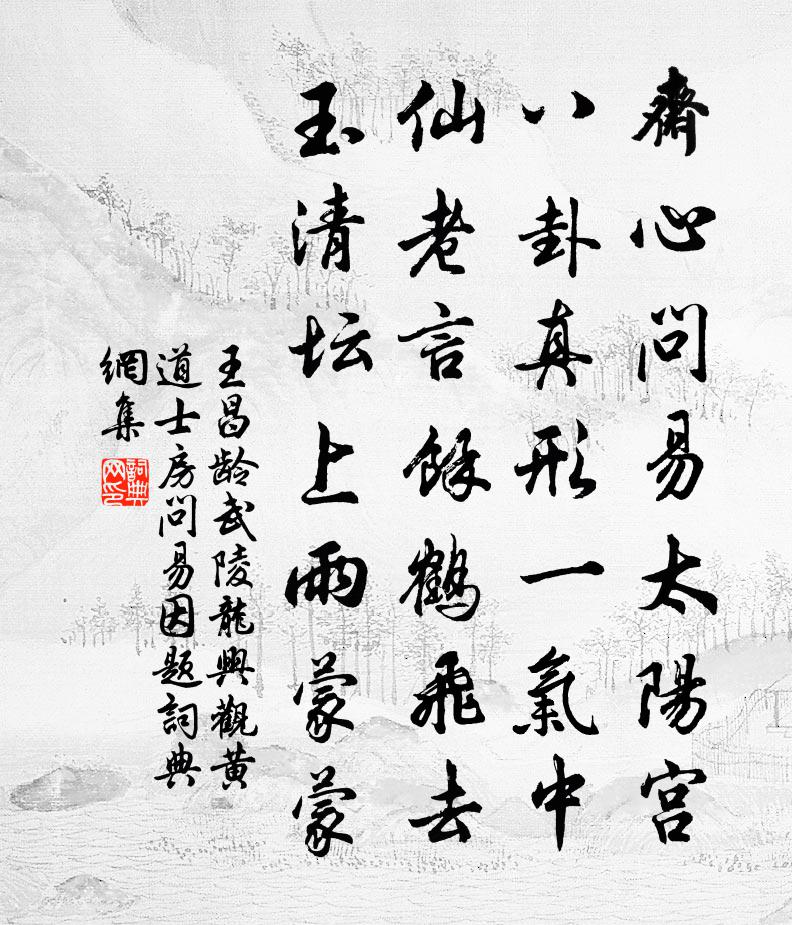 齋心問易太陽宮
八卦真形一氣中
仙老言餘鶴飛去
玉清坛上雨蒙蒙
王昌龄武陵龍興觀黄
道士房問易因題詞典
網集
詞典
网印